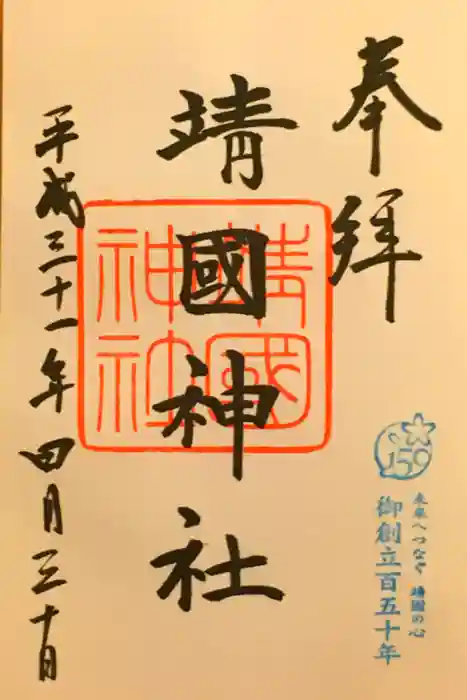 奉拝
靖國神社
平成三十一年四月三十日
靖國
神社
150
未来へつなぐ 靖國の心
御創立百五十年